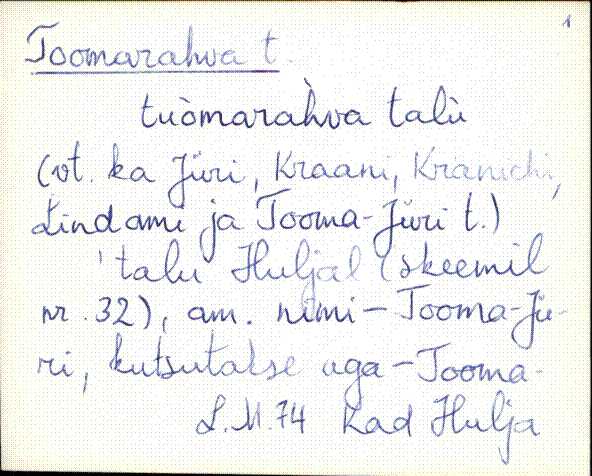 1
Toomarahva t.
tuòmarah̀va talù
(vt. ka Jüri, Kraani, Kranichi,
Lindami ja Tooma-Jüri t.)
'talu Huljal (skeemil
nr. 32), am. nimi - Tooma-Jü-
ri, kutsutakse aga - Tooma-
L.M.74 Kad Hulja